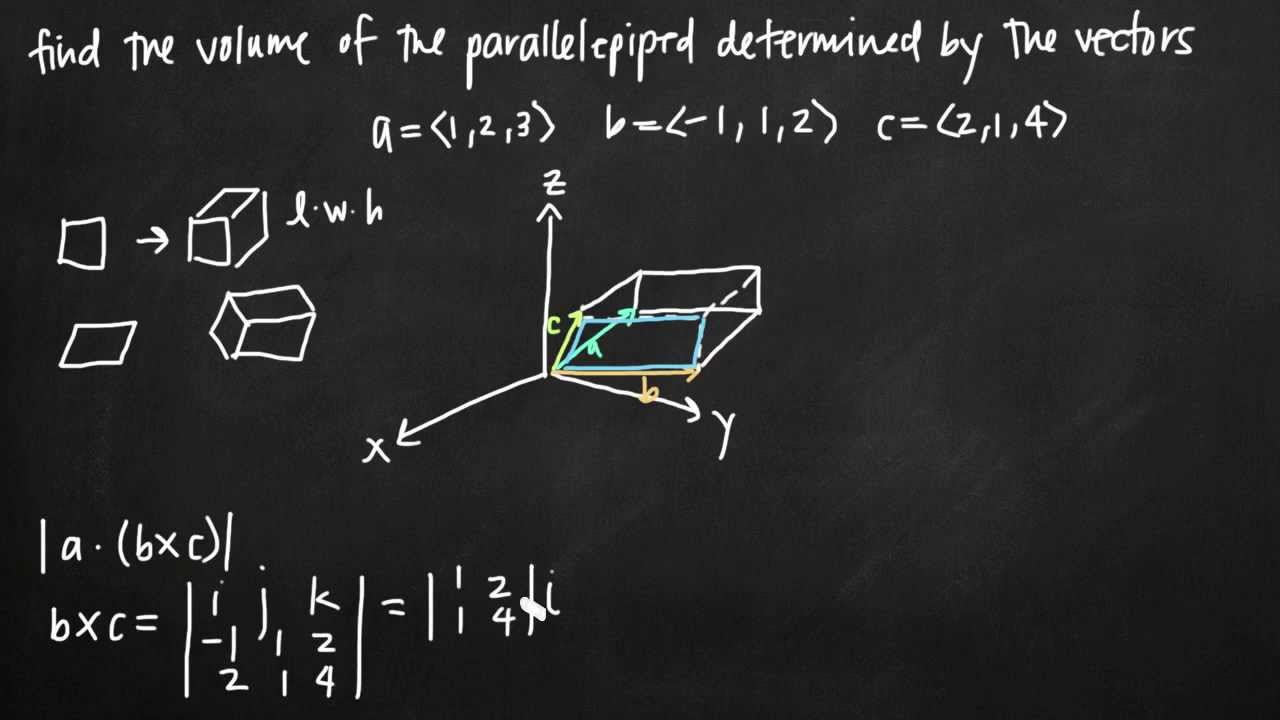 find the volume of the parallelepiped determined by the vectors
a=⟨1,2,3⟩ b=⟨-1,1,2⟩ c=⟨2,1,4⟩
z
→ l·w·h
c
a
b
x
y
|a·(b×c)|
b×c = | i j k | = | 1 2 | i
-1 1 2 1 4
2 1 4